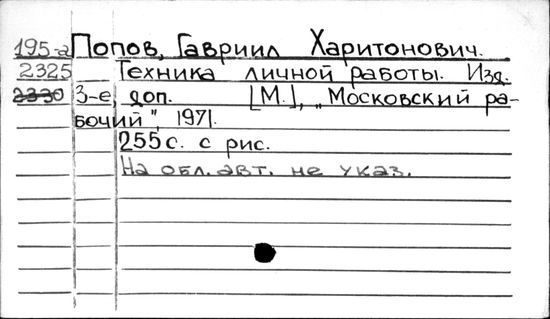 195-а Попов, Гавриил Харитонович.
2325 Техника личной работы. Изд.
2330 3-е, доп. [М.], „Московский ра-
бочий", 1971.
255 с. с рис.
На обл. авт. не указ.